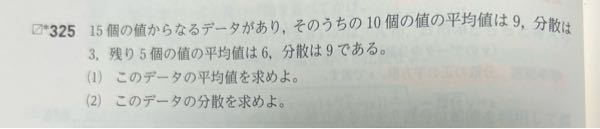 *325 15個の値からなるデータがあり，そのうちの10個の値の平均値は9，分散は
3，残り5個の値の平均値は6，分散は9である。
(1) このデータの平均値を求めよ。
(2) このデータの分散を求めよ。